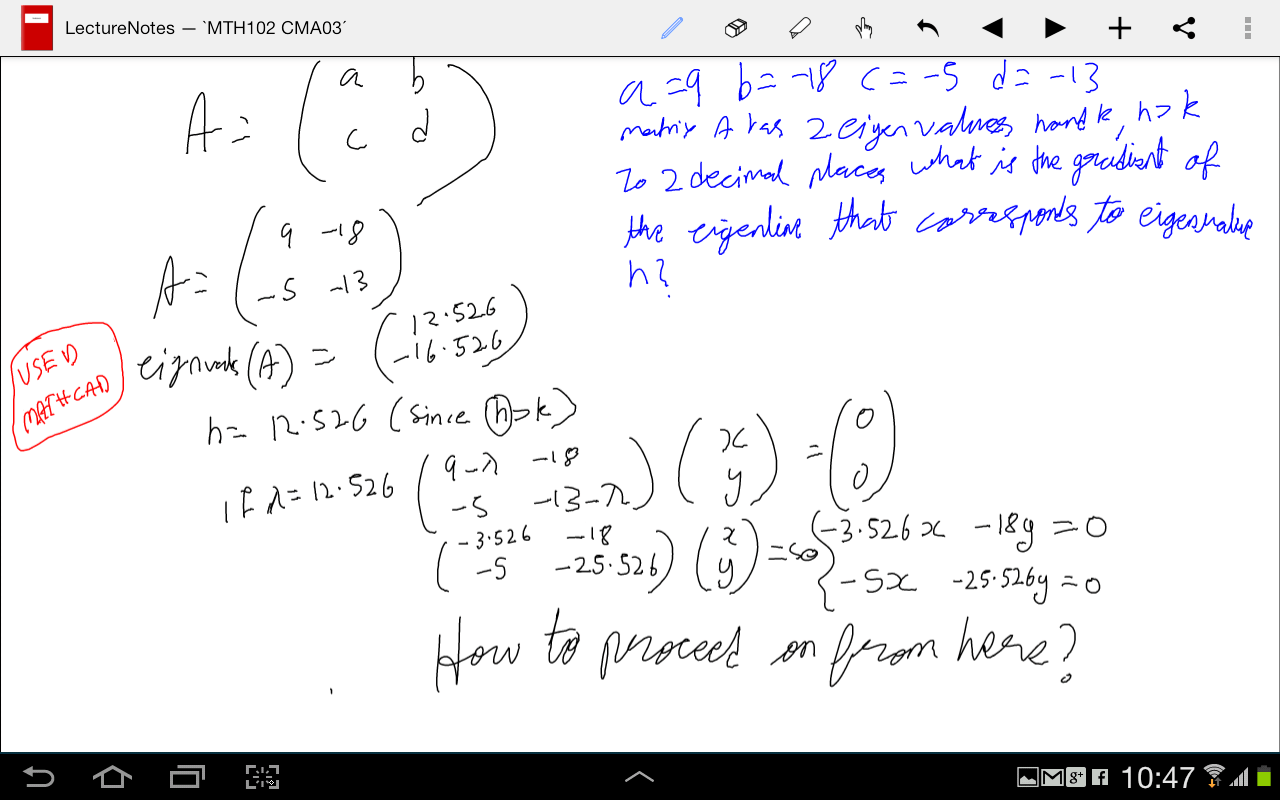 LectureNotes — `MTH102 CMA03´
A = ( a b
c d )
a = 9 b = -18 c = -5 d = -13
matrix A has 2 eigenvalues h and k, h > k
To 2 decimal places what is the gradient of
the eigenline that corresponds to eigenvalue
h?
A = ( 9 -18
-5 -13 )
USED
MATHCAD
eigenvals(A) = ( 12.526
-16.526 )
h = 12.526 (since h > k)
If λ = 12.526 ( 9-λ -18
-5 -13-λ ) ( x
y ) = ( 0
0 )
( -3.526 -18
-5 -25.526 ) ( x
y ) = so { -3.526x -18y = 0
-5x -25.526y = 0
How to proceed on from here?
10:47